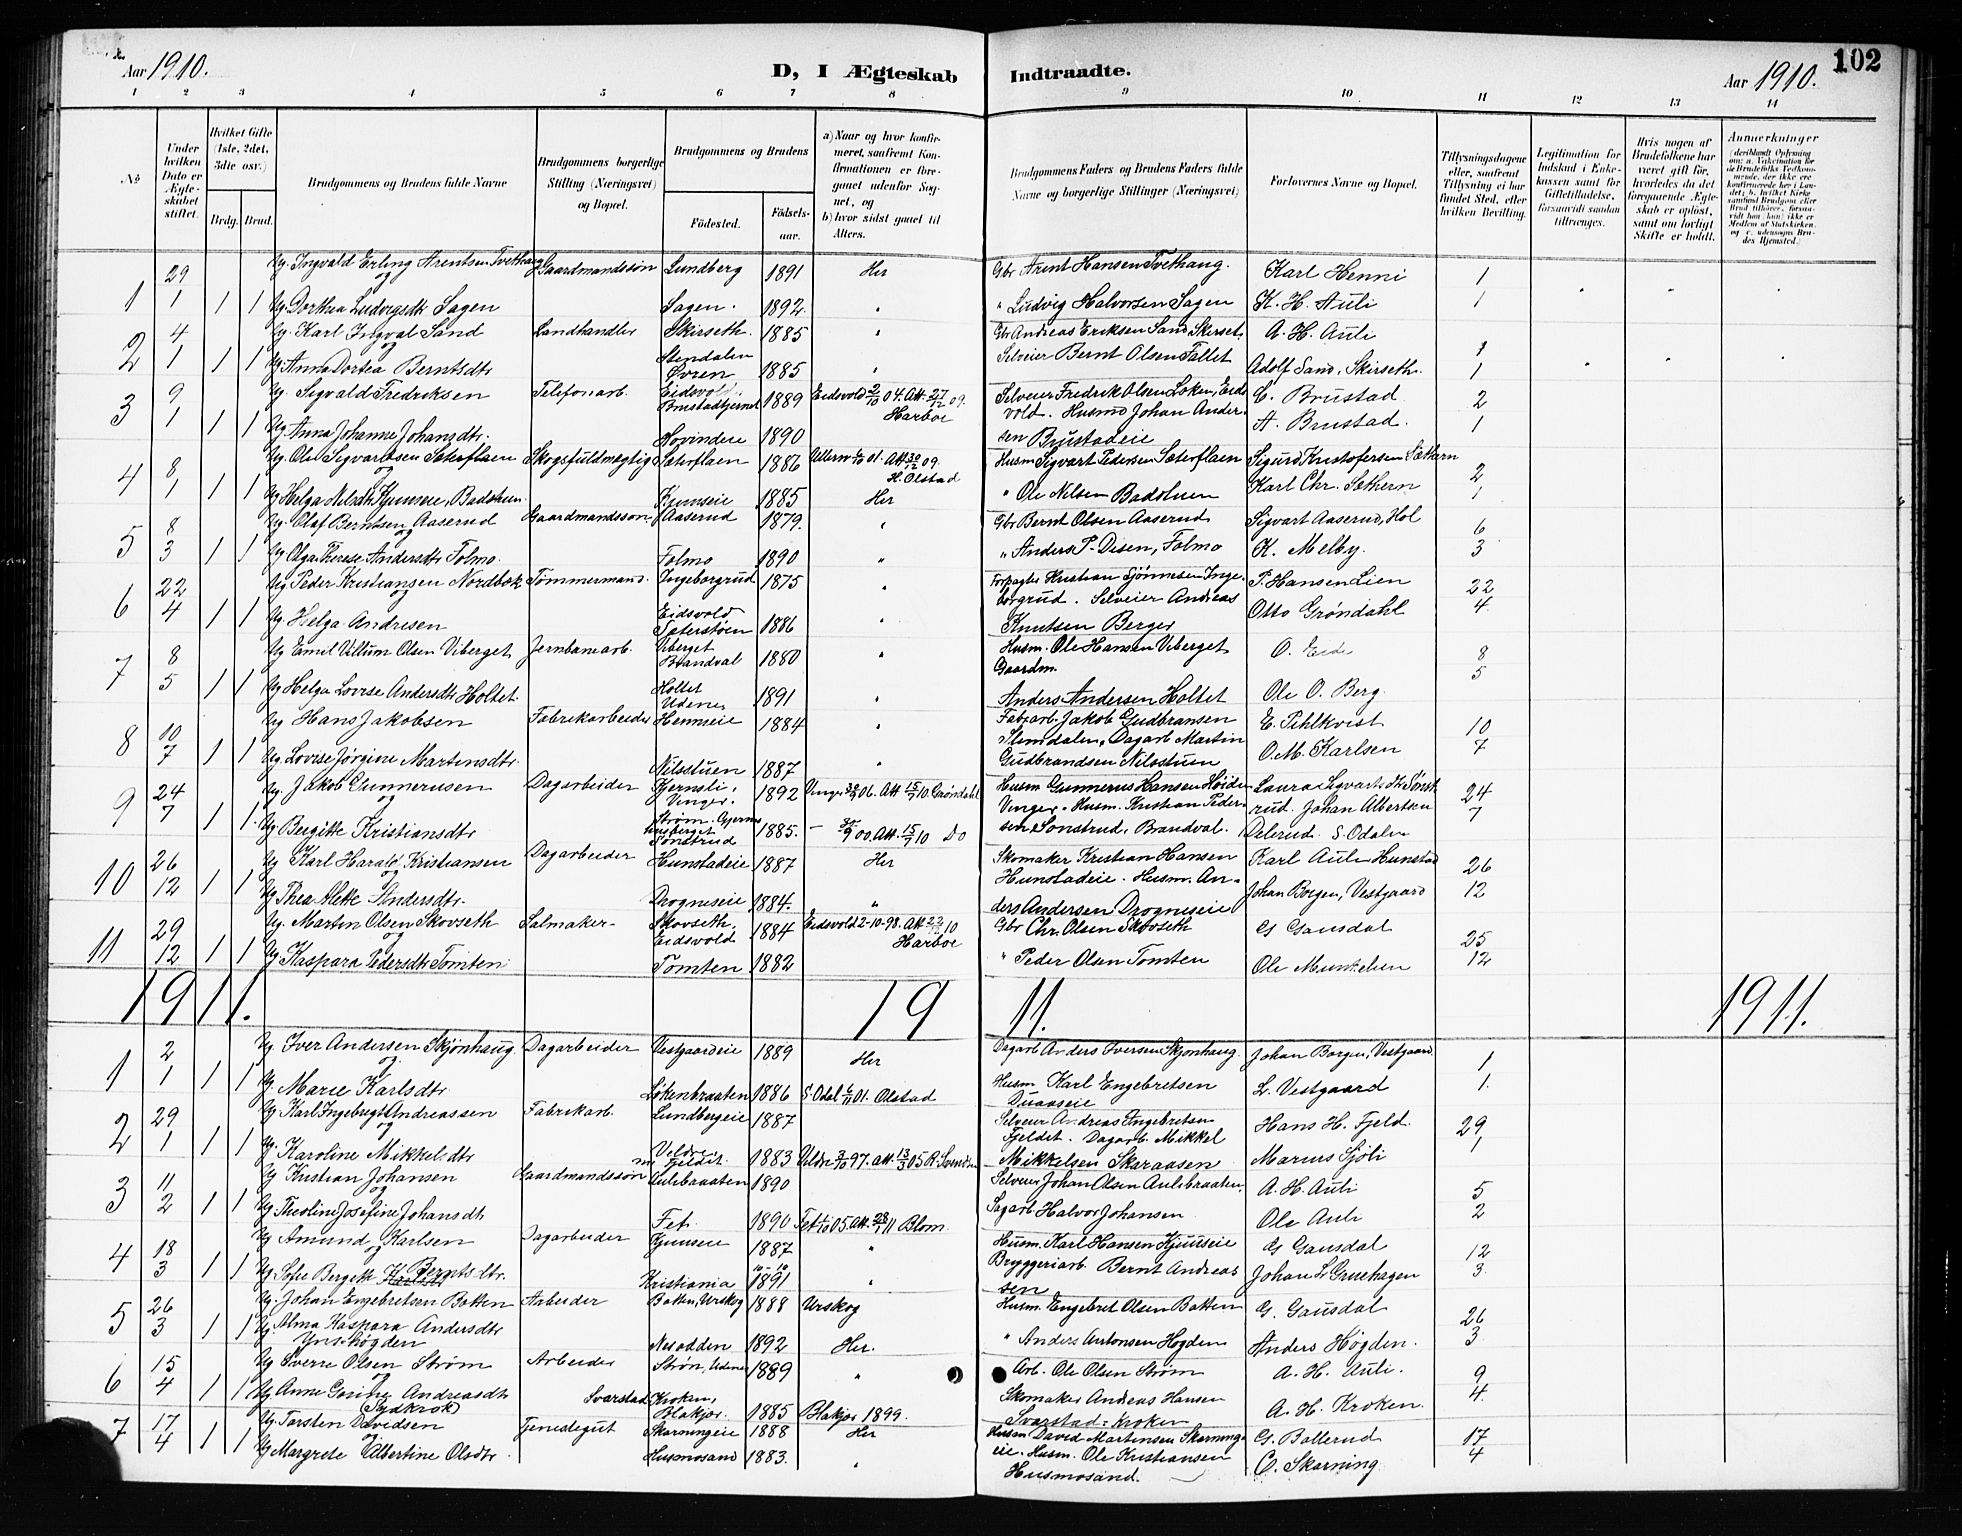 Aar 1910.
D, I Ægteskab Indtraadte.
Aar 1910.
102
1 2 3 4 5 6 7 8 9 10 11 12 13 14
No
Under hvilken Dato er Ægteskabet stiftet.
Hvilket Gifte (1ste, 2det, 3die osv.)
Brdg. Brud.
Brudgommens og Brudens fulde Navne
Brudgommens borgerlige Stilling (Næringsvei) og Bopæl.
Brudgommens og Brudens
Fødested. Fødselsaar.
a) Naar og hvor konfirmeret, saafremt Konfirmationen er foregaaet udenfor Sognet, og
b) hvor sidst gaaet til Alters.
Brudgommens Faders og Brudens Faders fulde Navne og borgerlige Stillinger (Næringsvei)
Forlovernes Navne og Bopæl.
Tillysningsdagene eller, saafremt Tillysning ei har fundet Sted, efter hvilken Bevilling.
Legitimation for Indskud i Enkekassen samt for Giftetilladelse, forsaavidt saadan tiltrænges.
Hvis nogen af Brudefolkene har været gift før, hvorledes da det foregaaende Ægteskab er opløst, samt om lovligt Skifte er holdt.
Anmerkninger
1 29/1 1 1 Ug. Ingvald Erling Arentsen Tvethaug Gaardmandssøn Lundberg 1891 Her Gbr Arent Hansen Tvethaug. Karl Henni 1
og
Ug. Dorthea Ludvigsdtr Sagen Sagen. 1892 " " Ludvig Halvorsen Sagen K. H. Auli 1
2 4/1 1 1 Ug. Karl Ingval Sand Landhandler Skirseth. 1885 " Gbr Andreas Eriksen Sand Skirset. A. H. Auli 1
og
Ug. Anna Dortea Berntsdtr Stendalen Øvren 1885 " Selveier Bernt Olsen Fallet Adolf Sand, Skirseth. 1
3 9/1 1 1 Ug. Sigvald Fredriksen Telefonarb. Eidsvold Brustadtjernet 1889 Eidsvold 2/10 04. Att. 27/12 09. Harboe Selveier Fredrik Olsen Løken, Eidsvold. Husmd Johan Andersen Brustadeie C. Brustad 2
Ug. Anna Johanne Johansdtr. Hovindeie 1890 A. Brustad. 1
4 8/1 1 1 Ug. Ole Sigvartsen Sæterflaen Skogsfuldmægtig Sæterflaen 1886 Ullern 01. Att 30/12 09. H. Olstad Husm Sigvart Pedersen Sæterflaen Sigurd Kristofersen Sæthern 2
og
Ug. Helga Nilsdtr Kjunseie, Badstuen Kjunseie 1885 Her " Ole Nilsen Badstuen Karl Chr. Sæthern 1
5 8/3 1 1 Ug. Olaf Berntsen Aaserud Gaardmandssøn Aaserud 1879. " Gbr Bernt Olsen Aaserud Sigvart Aaserud, Hol 6
og
Ug. Olga Therese Andersdtr Folmo. Folmo 1890 " " Anders P. Disen, Folmo K. Melby. 3
6 22/4 1 1 Ug. Peder Kristiansen Nordbæk Tømmermand. Ingeborgrud 1875 " Forpagter Kristian Sjønnesen Ingeborgrud. Selveier Andreas Knutsen Berger P. Hansen Lien 22
og
Ug. Helga Andresen Eidsvold 1886 " Otto Grøndahl 4
7 8/5 1 1 Ug Emil Villum Olsen Viberget Jernbanearb. Viberget Brandval 1880 " Husm. Ole Hansen Viberget O. Eide 8
Gaardm.
Ug. Helga Lovise Andersdtr Holtet Holtet Udenes 1891 " Anders Andersen Holtet Ole O. Berg. 5
8 10/7 1 1 Ug Hans Jakobsen Fabrikarbeider Hennieie 1884 " Fabrarb. Jakob Gudbransen Stendalen, Dagarb Martin Gudbrandsen Nilsstuen E. Pihlkvist 10
Ug. Lovise Jørgine Martinsdtr. Nilsstuen 1887 " O. M. Karlsen 7
9 24/7 1 1 Ug. Jakob Gunnerusen Dagarbeider Kjernsli, Vinger. 1892 Vinger 06. Att 15/7 10. Grøndahl Husm Gunnerus Hansen Vinger. Husm. Kristian Pedersen Sønstrud, Brandval. Laura Sigvartsdtr Sønstrud. Johan Albertsen Delerud. S. Odalen 24
og
Ug Bergitte Kristiansdtr Strøm. Sønstrud 1885. 00. Att. 15/7 10 Do 7
10 26/12 1 1 Ug Karl Harald Kristiansen Dagarbeider Hunstadeie 1887 Her Skomaker Kristian Hansen Hunstadeie. Husm. Anders Andersen Drogneseie Karl Auli Hunstad 26
og
Ug. Thea Mette Andersdtr. Drogneseie 1884. " Johan Borgen, Vestgaard 12
11 29/12 1 1 Ug. Martin Olsen Skovseth Salmaker Skovseth. Eidsvold 1884 Eidsvold 2-10-98. Att 22/12 10 Harboe Gbr Chr. Olsen Skovseth G Gausdal 25
og
Ug. Kaspara Pedersdtr Tomten Tomten 1882 " Peder Olsen Tomten Ole Munkelien 12
1911. 1911. 1911.
1 2/1 1 1 Ug. Iver Andersen Skjønhaug Dagarbeider Vestgaardeie 1889 Her Dagarb Anders Iversen Skjønhaug. Johan Borgen, Vestgaard 1
og
Ug. Marie Karlsdtr Løkenbraaten 1886 S. Odal 01. Olstad Husm Karl Engebretsen L. Vestgaard 1.
2 29/1 1 1 Ug Karl Ingebrigt Andreassen Fabrikarb. Lundbergeie 1887 Selveier Andreas Engebretsen Fjeldet. Dagarb. Mikkel Mikkelsen Skaraasen Hans H. Fjeld. 29
og
Ug. Karoline Mikkelsdtr Veldre 1883 Veldre 3/10 97. Att. 13/3 05 R. Svendsen Marius Sjøli 1
3 11/2 1 1 Ug Kristian Johansen Gaardmandssøn Aulibraaten 1890 Selveier Johan Olsen Aulibraaten. A. H. Auli 5
og
Ug Theoline Josefine Johansdtr Fet. 1890 Fet 05. Att. 28/1 11 Blom. Sagarb Halvor Johansen Ole Auli 2
4 18/3 1 1 Ug Amund Karlsen Dagarbeider Kjunseie 1887 " Husm. Karl Hansen Kjunseie G Gausdal 12
og
Ug Sofie Bergette Berntsdtr. Kristiania 10-10 1891 " Bryggeriarb Bernt Andreassen Johan L Gruehagen 3.
5 26/3 1 1 Ug. Johan Engebretsen Botten Aabeider Botten, Urskog 1888 Urskog Husm Engebret Olsen Botten G. Gausdal 26
Ug. Alma Kaspara Andersdtr Høgden Nesodden 1892 Her. " Anders Antonsen Høgden Anders Høgden. 3
6 15/4 1 1 Ug Sverre Olsen Strøm Arbeider Strøm, Udenes 1889 " Arb. Ole Olsen Strøm A. H. Auli. 9
og
Ug. Anne Gurine Andreasdtr Svarstad Kroken, Blakjer. 1885 Blakjer 1899. Skomaker Andreas Hansen Svarstad = Kroken A. H. Kroken. 4
(Sydkrok)
7 17/4 1 1 Ug. Torsten Davidsen Tjenestegut Skarningeie 1888 Her Husm David Martinsen Skarningeie. Husm. Ole Kristiansen Husmosand. G. Bollerud 17
og
Ug Margrete Albertine Olsdtr. Husmosand 1883. " C. Skarning. 4